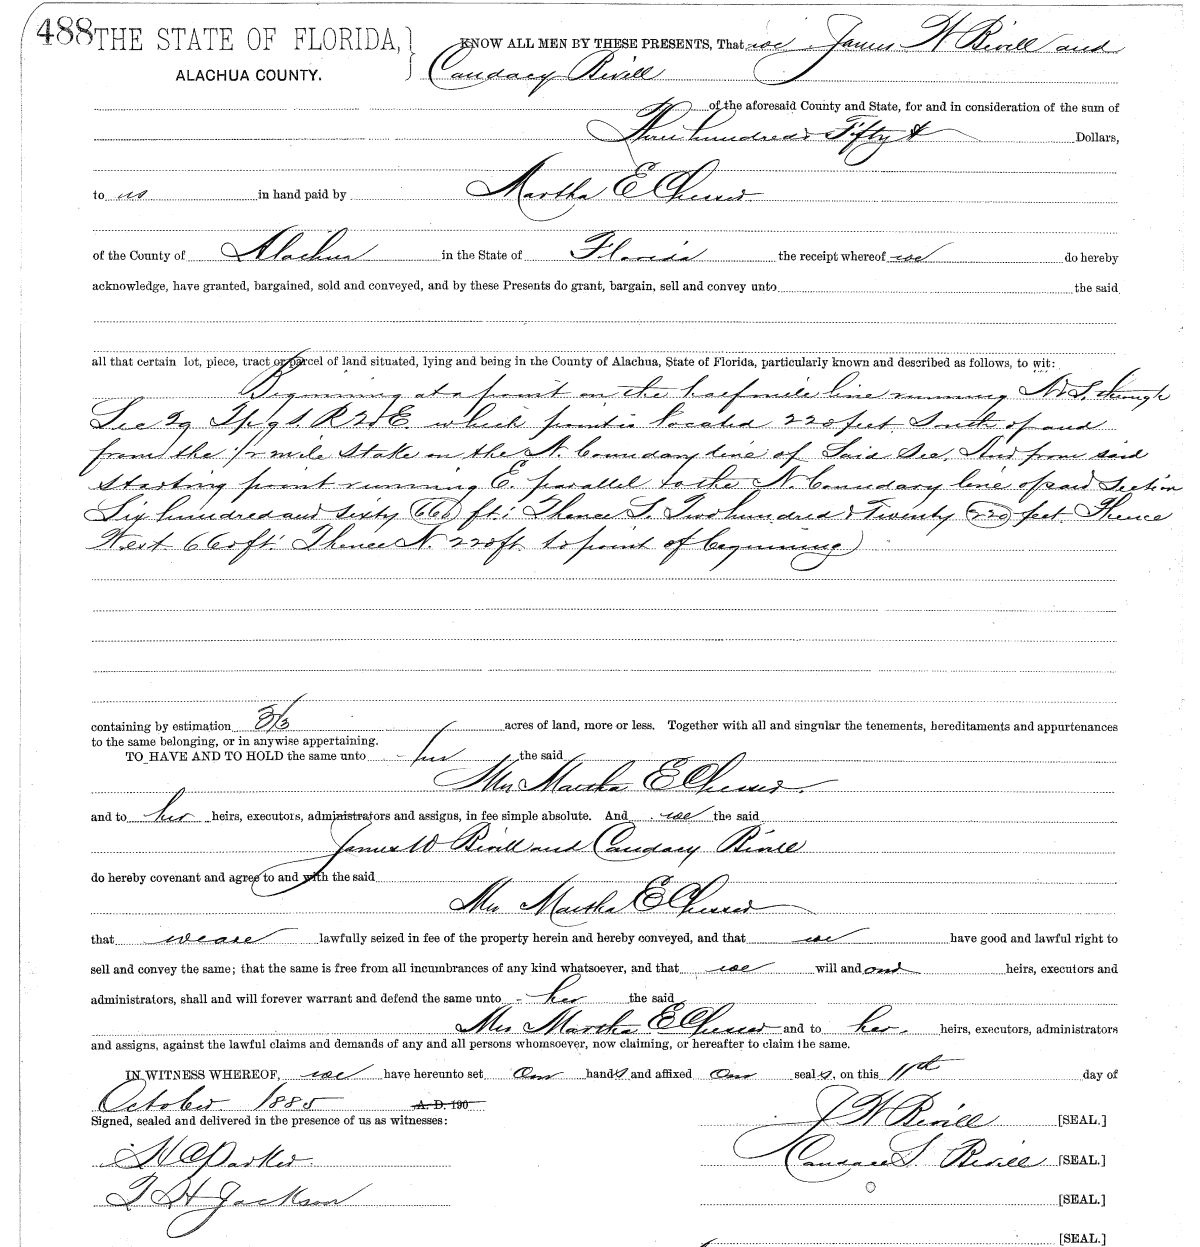 488 THE STATE OF FLORIDA,
ALACHUA COUNTY.
KNOW ALL MEN BY THESE PRESENTS, That we James W Bevill and
Candacy Bevill
of the aforesaid County and State, for and in consideration of the sum of
Three hundred & Fifty & Dollars,
to us in hand paid by Martha E Chesser
of the County of Alachua in the State of Florida the receipt whereof we do hereby
acknowledge, have granted, bargained, sold and conveyed, and by these Presents do grant, bargain, sell and convey unto the said
all that certain lot, piece, tract or parcel of land situated, lying and being in the County of Alachua, State of Florida, particularly known and described as follows, to wit:
Beginning at a point on the half mile line running N & S. through
Sec 29 Tp. 9 S. R 20 E. which point is located 220 feet South of and
from the 1/2 mile Stake on the N. boundary line of Said Sec. And from said
starting point running E. parallel to the N. boundary line of said Section
Six hundred and sixty (660) ft: Thence S. Two hundred & Twenty (220) feet Thence
West 660 ft: Thence N. 220 ft. to point of beginning)
containing by estimation 3 1/3 acres of land, more or less. Together with all and singular the tenements, hereditaments and appurtenances
to the same belonging, or in anywise appertaining.
TO HAVE AND TO HOLD the same unto her the said
Mrs Martha E Chesser.
and to her heirs, executors, administrators and assigns, in fee simple absolute. And we the said
James W Bevill and Candacy Bevill
do hereby covenant and agree to and with the said
Mrs Martha E Chesser
that we are lawfully seized in fee of the property herein and hereby conveyed, and that we have good and lawful right to
sell and convey the same; that the same is free from all incumbrances of any kind whatsoever, and that we will and our heirs, executors and
administrators, shall and will forever warrant and defend the same unto her the said
Mrs Martha E Chesser and to her. heirs, executors, administrators
and assigns, against the lawful claims and demands of any and all persons whomsoever, now claiming, or hereafter to claim the same.
IN WITNESS WHEREOF, we have hereunto set Our hands and affixed Our seals, on this 11th day of
October 1885 A. D. 190
Signed, sealed and delivered in the presence of us as witnesses:
J W Bevill [SEAL.]
Parker
Candace S. Bevill [SEAL.]
T H Jackson
[SEAL.]
[SEAL.]